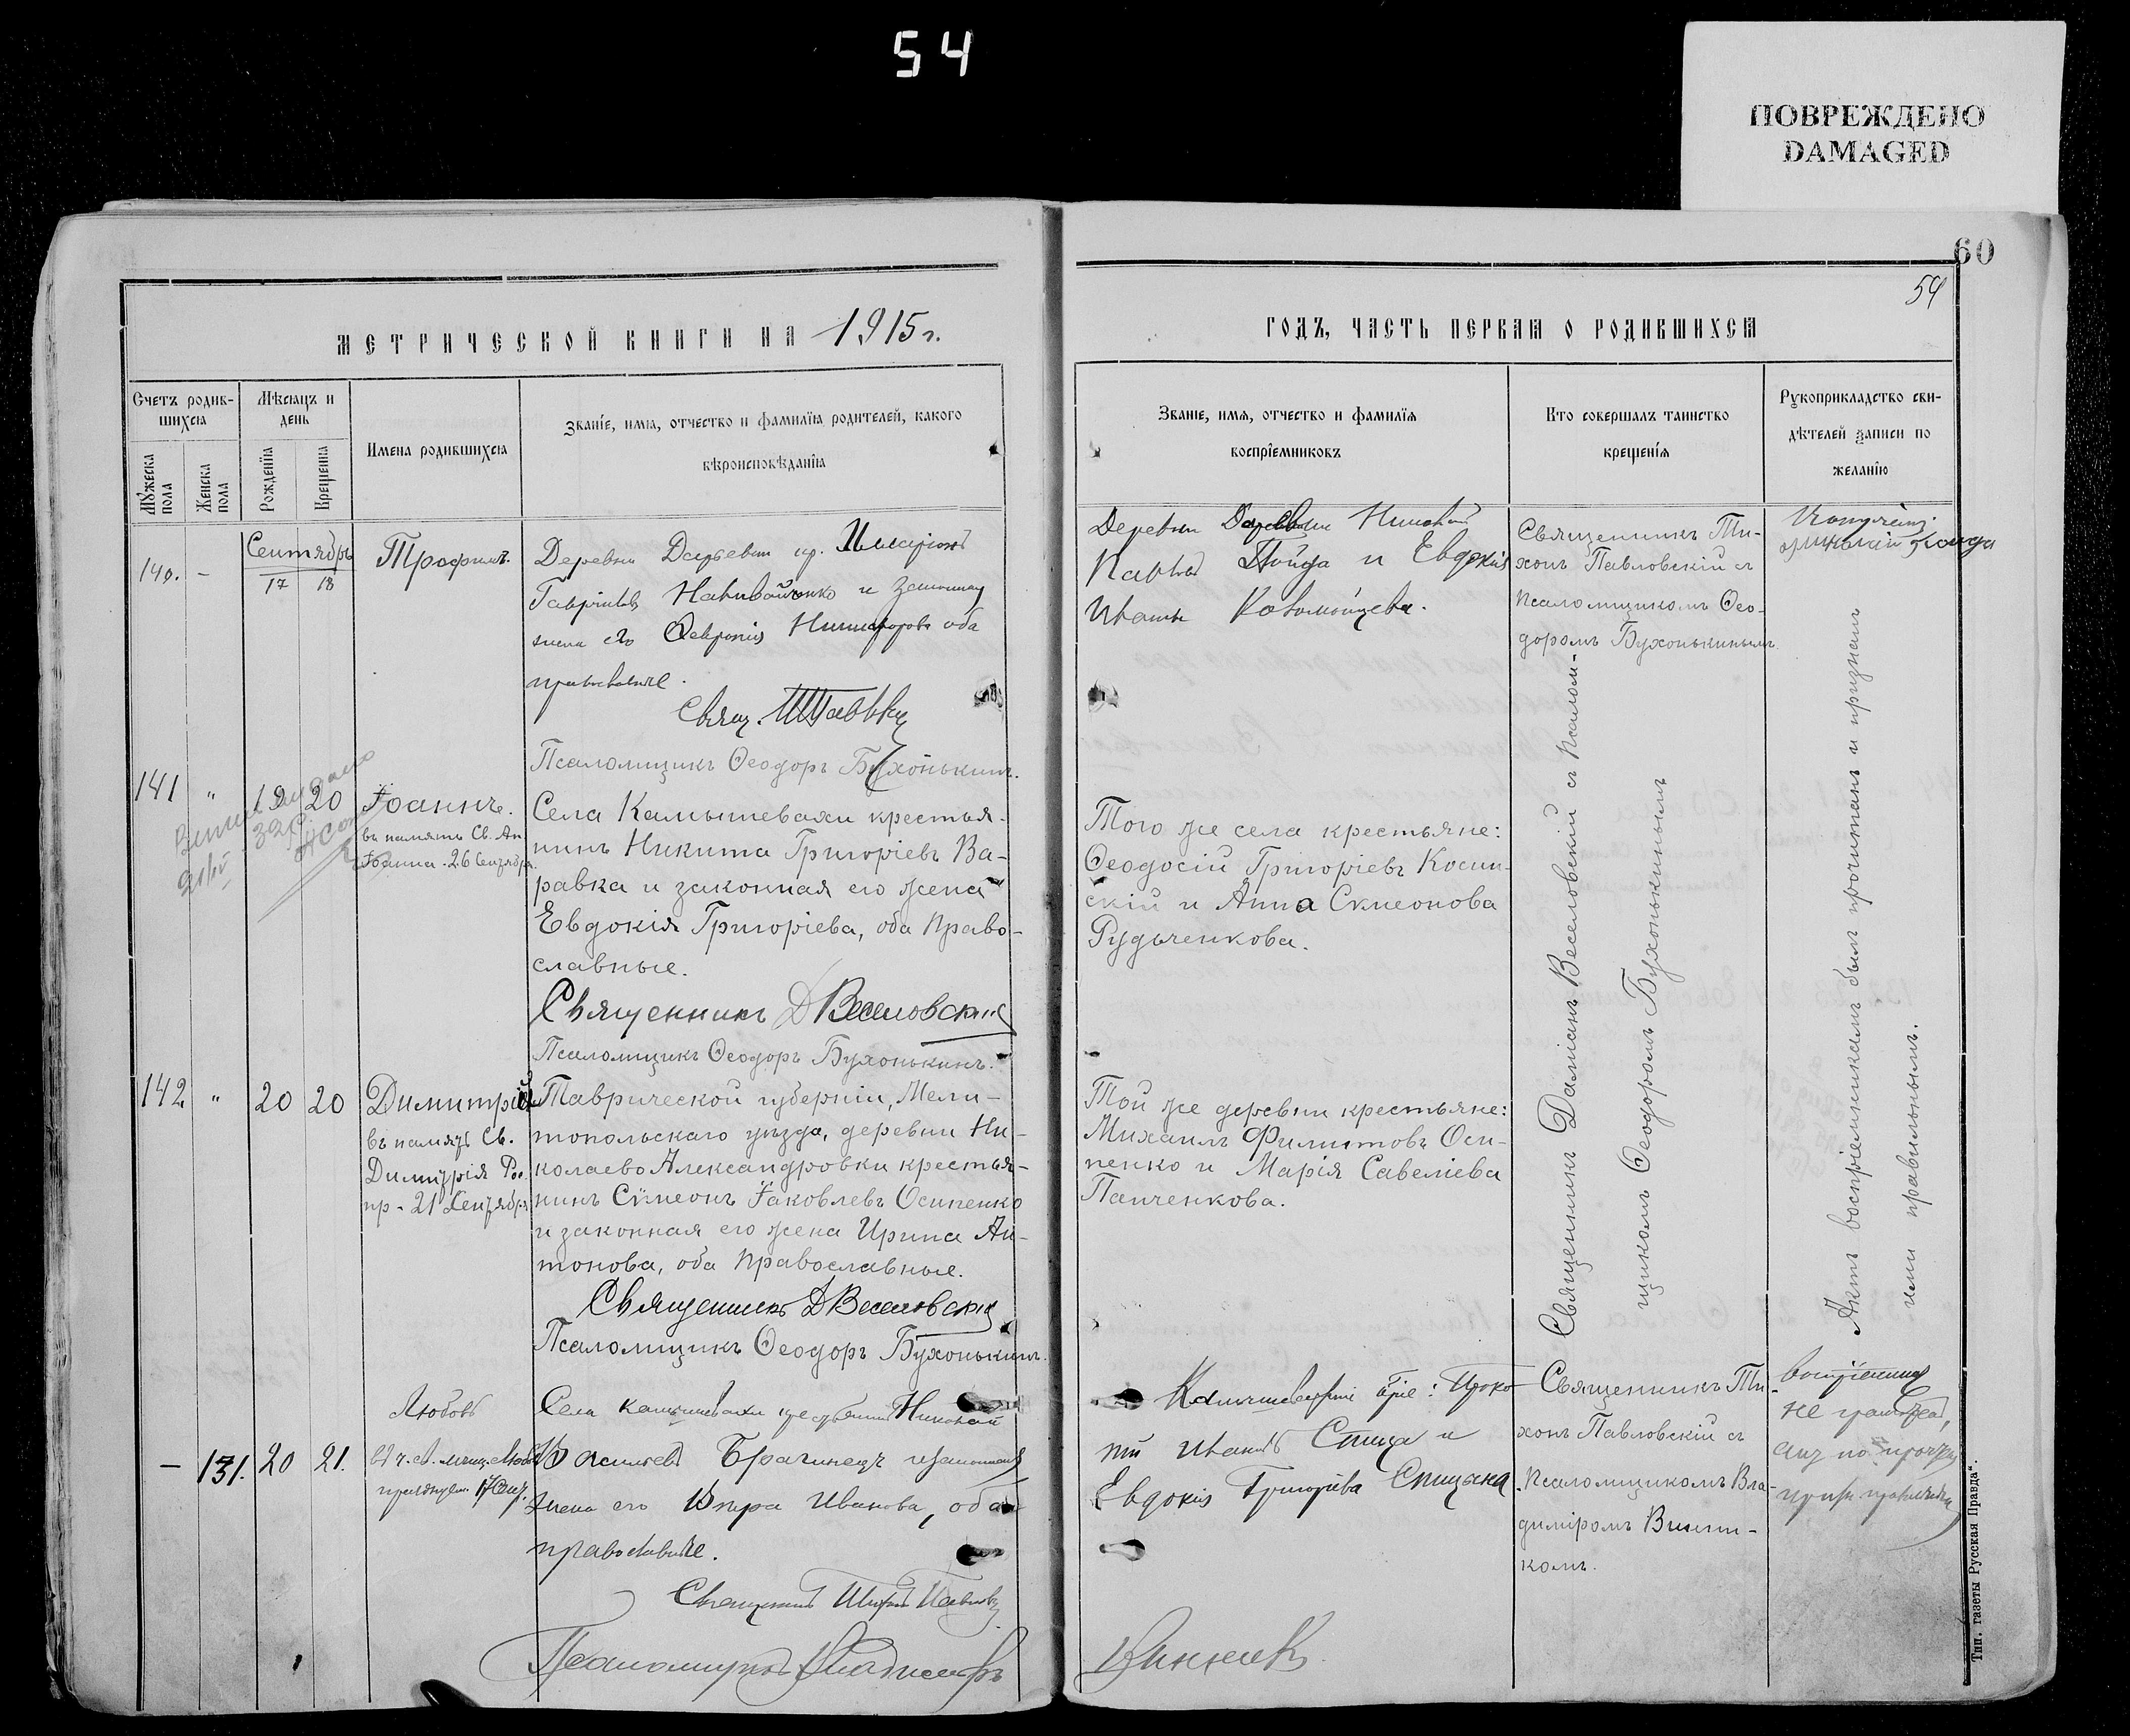 54
ПОВРЕЖДЕНО
DAMAGED
60
54
МЕТРИЧЕСКОЙ КНИГИ НА 1915 г.
ГОДЪ, ЧАСТЬ ПЕРВАЯ О РОДИВШИХСЯ
Счетъ родив-
шихся
Мужеска пола
Женска пола
Мѣсяцъ и
день
Рожденїя
Крещенїя
Имена родившихся
Званїе, имя, отчество и фамилїя родителей, какого
вѣроисповѣданїя
Званїе, имя, отчество и фамилїя
воспрїемниковъ
Кто совершалъ таинство
крещенїя
Рукоприкладство сви-
дѣтелей записи по
желанїю
140. -
Сентябрь
17 18
Трофимъ.
Деревни Дарьевки кр. Иларіонъ
Гавріиловъ Наливайченко и законная
жена его Февронія Никифорова оба
православные.
Свящ.
Псаломщикъ Ѳеодоръ Бухонькинъ.
Деревни Дарьевки Николай
Павловъ и Евдокія
Иванова Коломойцева.
Священникъ Ти-
хонъ Павловскій съ
псаломщикомъ Ѳео-
доромъ Бухонькинымъ
Николай
141 " 19 20
Іоаннъ.
въ память Св. Ап.
Іоанна - 26 Сентября.
Села Камышевахи крестья-
нинъ Никита Григоріевъ Ва-
равка и законная его жена
Евдокія Григоріева, оба право-
славные.
Священникъ Д Веселовскій
Псаломщикъ Ѳеодоръ Бухонькинъ.
Того же села крестьяне:
Ѳеодосій Григоріевъ Косин-
скій и Анна Симеонова
Рудыченкова.
Священникъ Даміанъ Веселовскій съ псалом-
щикомъ Ѳеодоромъ Бухонькинымъ
Актъ воспріемникамъ былъ прочитанъ и признанъ
ими правильнымъ.
142 " 20 20
Димитрій
въ память Св.
Димитрія Рос.
пр - 21 Сентября
Таврической губерніи, Мели-
топольскаго уѣзда, деревни Ни-
колаево Александровки крестья-
нинъ Симеонъ Іаковлевъ Осипенко
и законная его жена Ирина Ан-
тонова, оба православные.
Священникъ Д Веселовскій
Псаломщикъ Ѳеодоръ Бухонькинъ.
Той же деревни крестьяне:
Михаилъ Филиповъ Оси-
пенко и Марія Савеліева
Панченкова.
- 131. 20 21.
Любовь
Села Камышевахи крестьянинъ Николай
Васильевъ Брагинецъ и законная
жена его Вѣра Иванова, оба
православные.
Священникъ Тихонъ Павловскій
Псаломщикъ Владиміръ
Винникъ
Иванъ Спица и
Евдокія Григоріева Спицына
Священникъ Ти-
хонъ Павловскій съ
псаломщикомъ Вла-
диміромъ Винни-
комъ.
воспріемники
не грамотны,
Тип. газеты Русская Правда".